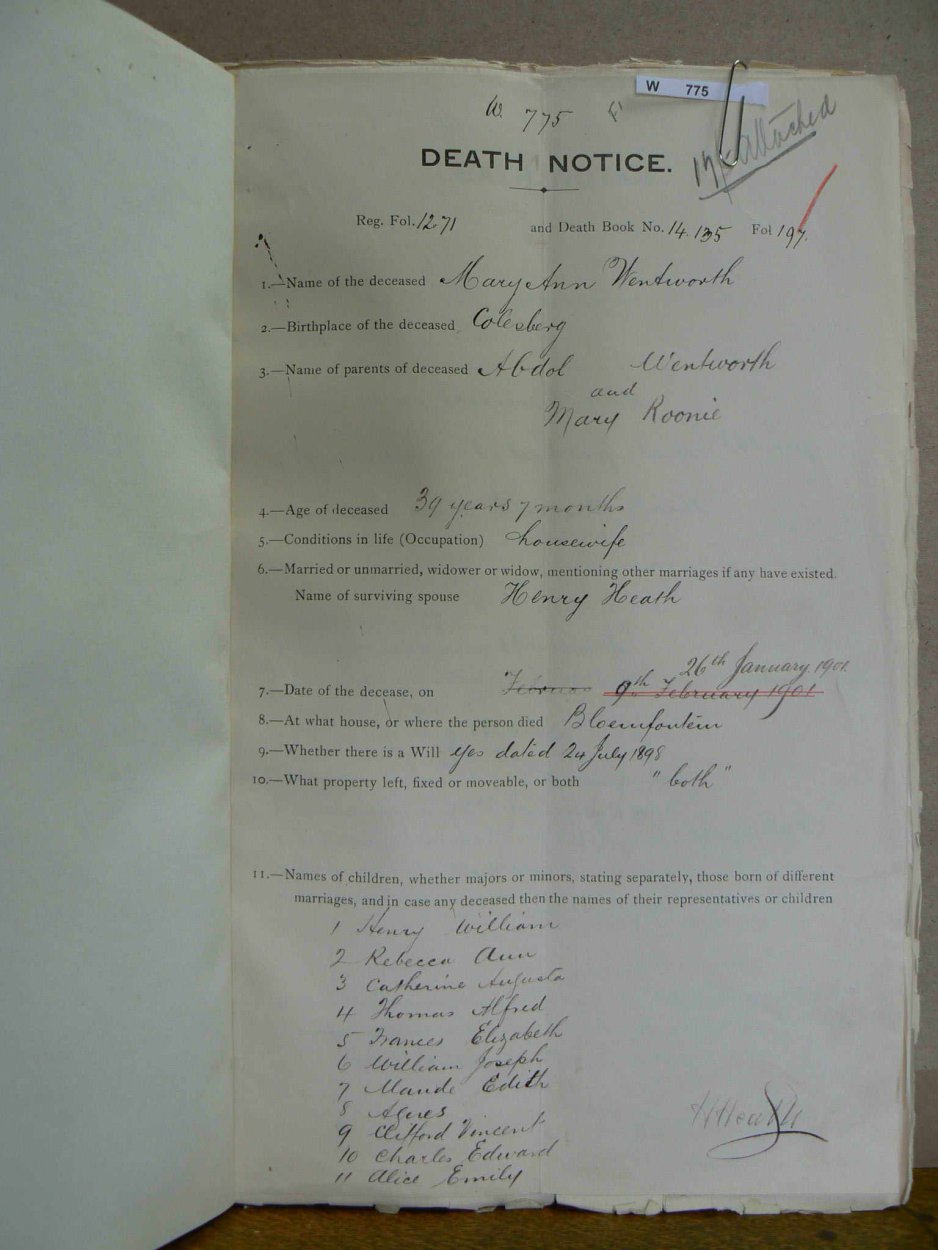 W 775
W. 775
attached
DEATH NOTICE.
Reg. Fol. 1271 and Death Book No. 14.135 Fol 197.
1.—Name of the deceased Mary Ann Wentworth
2.—Birthplace of the deceased Colesberg
3.—Name of parents of deceased Abdol Wentworth
and
Mary Roonie
4.—Age of deceased 39 years 7 months
5.—Conditions in life (Occupation) housewife
6.—Married or unmarried, widower or widow, mentioning other marriages if any have existed.
Name of surviving spouse Henry Heath
26th January 1901.
7.—Date of the decease, on 9th February 1901
8.—At what house, or where the person died Bloemfontein
9.—Whether there is a Will yes dated 24 July 1898
10.—What property left, fixed or moveable, or both "both"
11.—Names of children, whether majors or minors, stating separately, those born of different
marriages, and in case any deceased then the names of their representatives or children
1 Henry William
2 Rebecca Ann
3 Catherine Augusta
4 Thomas Alfred
5 Frances Elizabeth
6 William Joseph
7 Maude Edith
8 Agnes
9 Clifford Vincent
10 Charles Edward
11 Alice Emily
H Heath